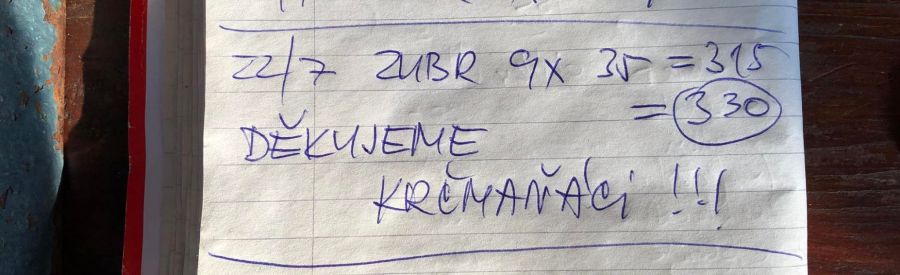 22/7 ZUBR 9x 35 = 315
= 330
DĚKUJEME
KRČMAŇÁCI !!!